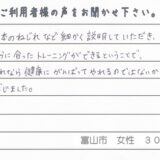 ご利用者様の声をお聞かせ下さい。
体のねじれなど細かく説明していただき、
うに合ったトレーニングができるということで、
れなら健康にがんばってやれるのではないか
じました。
富山市 女性 30